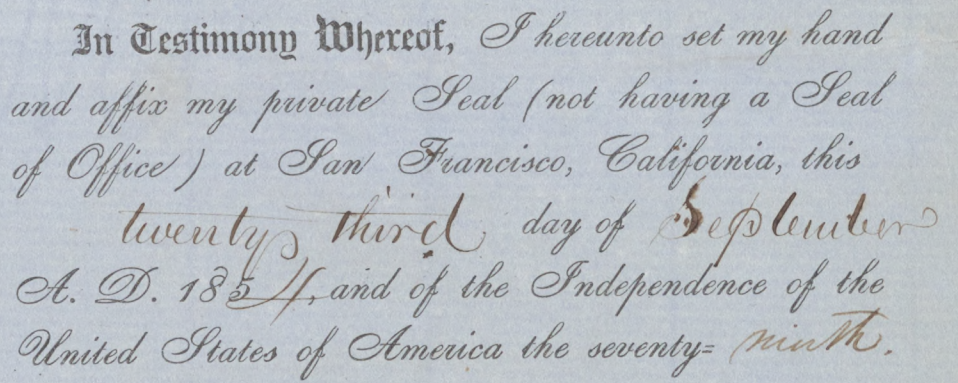 In Testimony Whereof, I hereunto set my hand
and affix my private Seal (not having a Seal
of Office) at San Francisco, California, this
twenty third day of September
A. D. 1854, and of the Independence of the
United States of America the seventy= ninth.